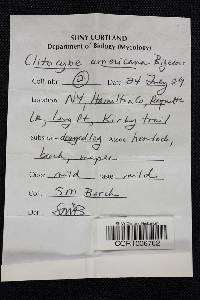 SUNY CORTLAND
Department of Biology (Mycology)
Clitocybe americana Bigelow
Coll. no. 2 Date 24 July 09
Location NY, Hamilton Co, Raquette
Lk, Long Pt, Kirby trail
decayed log hemlock,
beech, maple
Odor mild Taste mild
Coll. SM Berch
Det. SMB